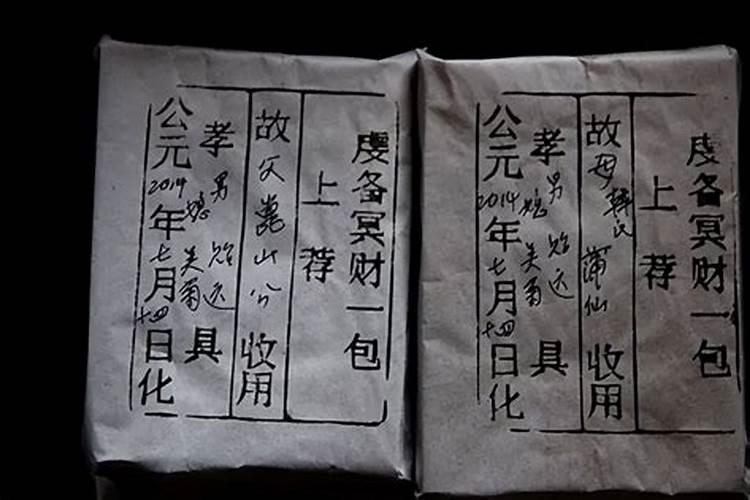 虔备冥财一包
上荐
故父嵩山公收用
孝男 贻远 媳 美菊 具
公元2014年七月十四日化
虔备冥财一包
上荐
故母韩氏 蒲仙收用
孝男 贻远 媳 美菊 具
公元2014年七月十四日化